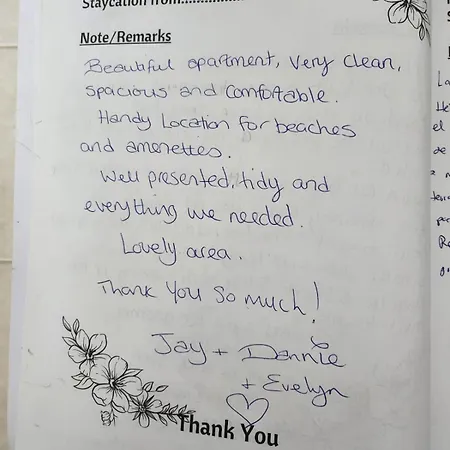 Staycation from.................
Note/Remarks
Beautiful apartment, very clean,
spacious and comfortable.
Handy Location for beaches
and amenettes.
Well presented, tidy and
everything we needed.
Lovely area.
Thank you so much!
Jay + Dannie
+ Evelyn
Thank You